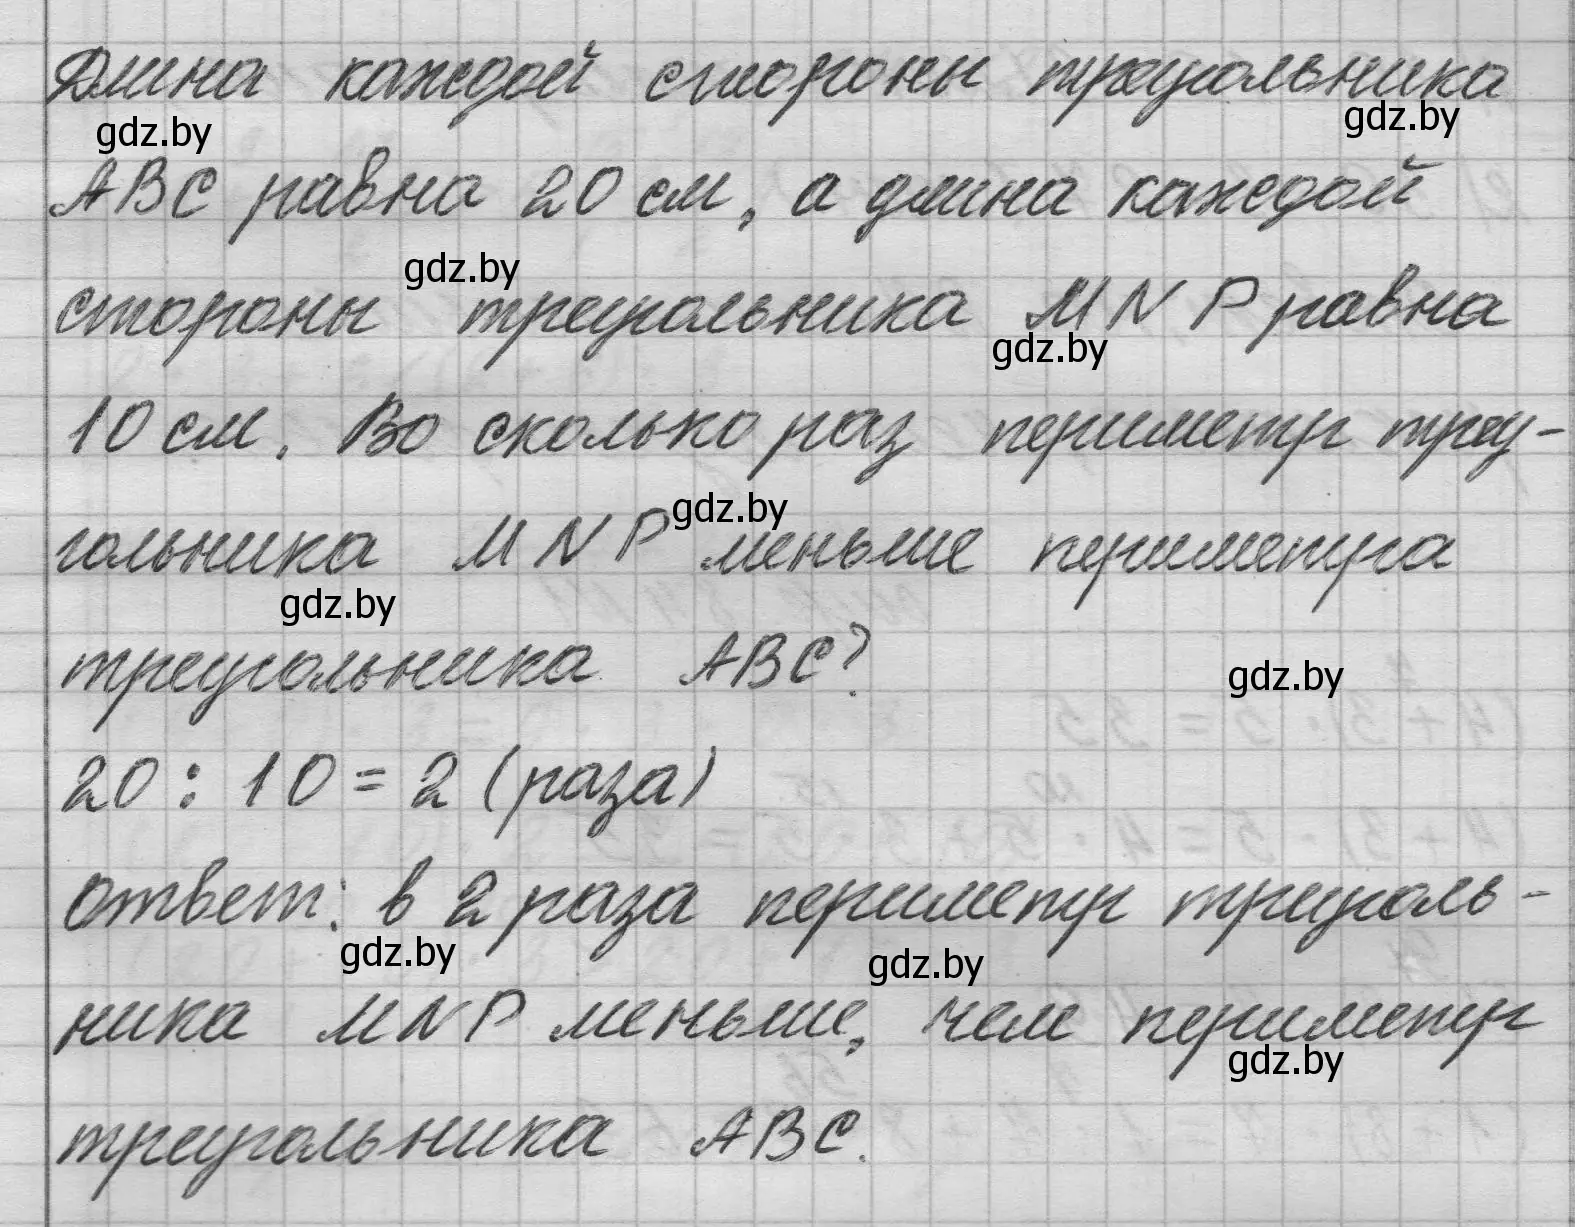 Длина каждой стороны треугольника
gdz.by gdz.by
ABC равна 20 см, а длина каждой
gdz.by
стороны треугольника MNP равна
gdz.by
10 см. Во сколько раз периметр треу-
gdz.by
гольника MNP меньше периметра
gdz.by
треугольника ABC?
gdz.by
20 : 10 = 2 (раза)
Ответ: в 2 раза периметр треуголь-
gdz.by gdz.by
ника MNP меньше, чем периметр
gdz.by
треугольника ABC.